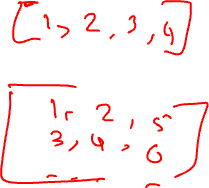 [1, 2, 3, 4]
[1, 2, 5
3, 4, 6
- - - -]